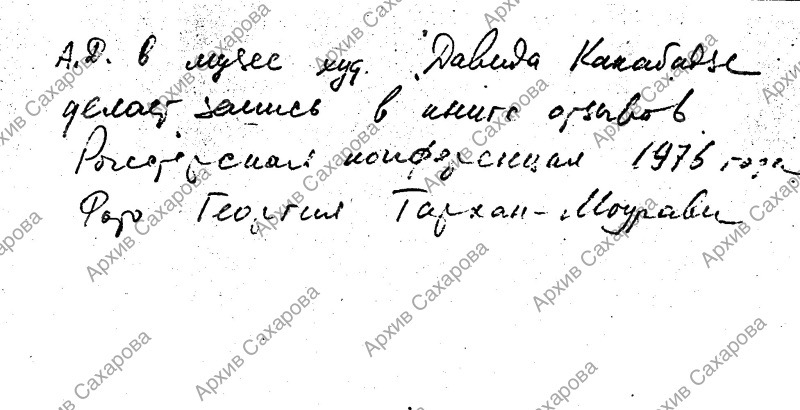 А.Д. в музее худ. Давида Какабадзе
делает запись в книге отзывов
Рочестерская конференция 1976 года
Фото Георгия Тархан-Моурави
Архив Сахарова
Архив Сахарова
Архив Сахарова
Архив Сахарова
Архив Сахарова
Архив Сахарова
Архив Сахарова
Архив Сахарова
Архив Сахарова
Архив Сахарова
Архив Сахарова
Архив Сахарова
Архив Сахарова
Архив Сахарова